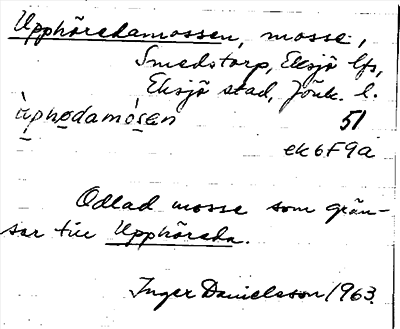 Upphöredamossen, mosse,
Smedstorp, Eksjö lfs,
Eksjö stad, Jönk. l.
ùphodamósen 51
ek 6F9a
Odlad mosse som grän-
sar till Upphöreda.
Inger Danielsson 1963.